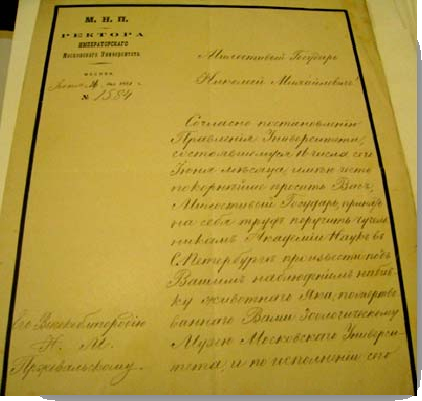 М. Н. П.
РЕКТОРА
ИМПЕРАТОРСКАГО
Московскаго Университета
МОСКВА.
№ 1584
Милостивый Государь
Николай Михайловичъ!
Согласно постановленію
Правленія Университета,
состоявшемуся числа сего
Іюня мѣсяца, имѣю честь
покорнѣйше просить Васъ,
Милостивый Государь, принять
на себя трудъ поручить
Академіи Наукъ въ
С.Петербургѣ произвести подъ
Вашимъ наблюденіемъ набив-
ку животнаго Яка, пожертво-
ваннаго Вами Зоологическому
Музею Московскаго Универси-
тета, и по исполненіи сего
Его Высокоблагородію
Н. М.
Пржевальскому.